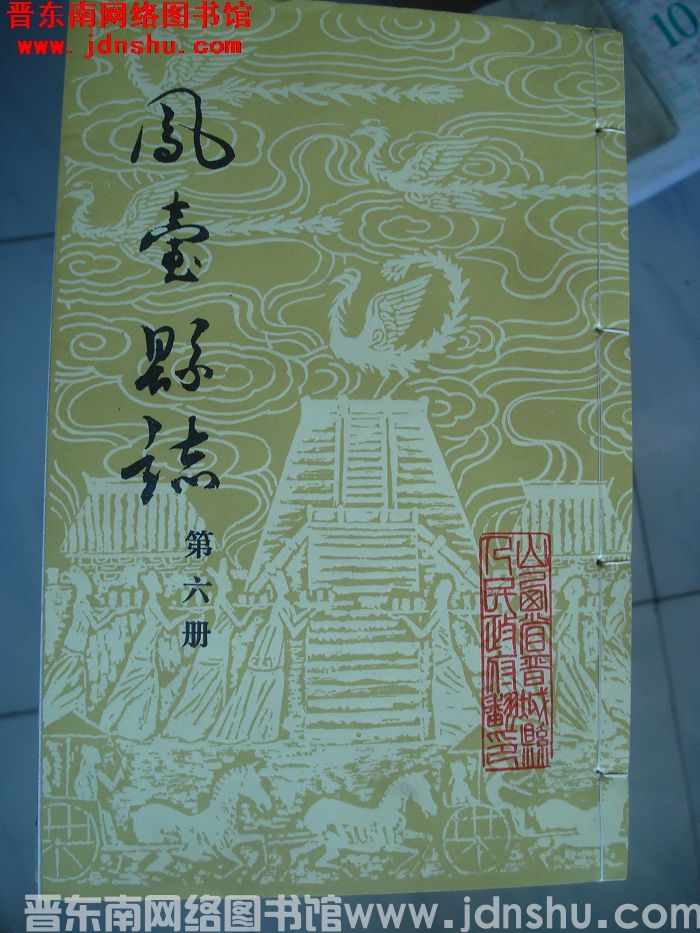 晋东南网络图书馆
www.jdnshu.com
鳳臺縣誌
第六册
山西省晉城縣
人民政府翻印
10
晋东南网络图书馆www.jdnshu.com